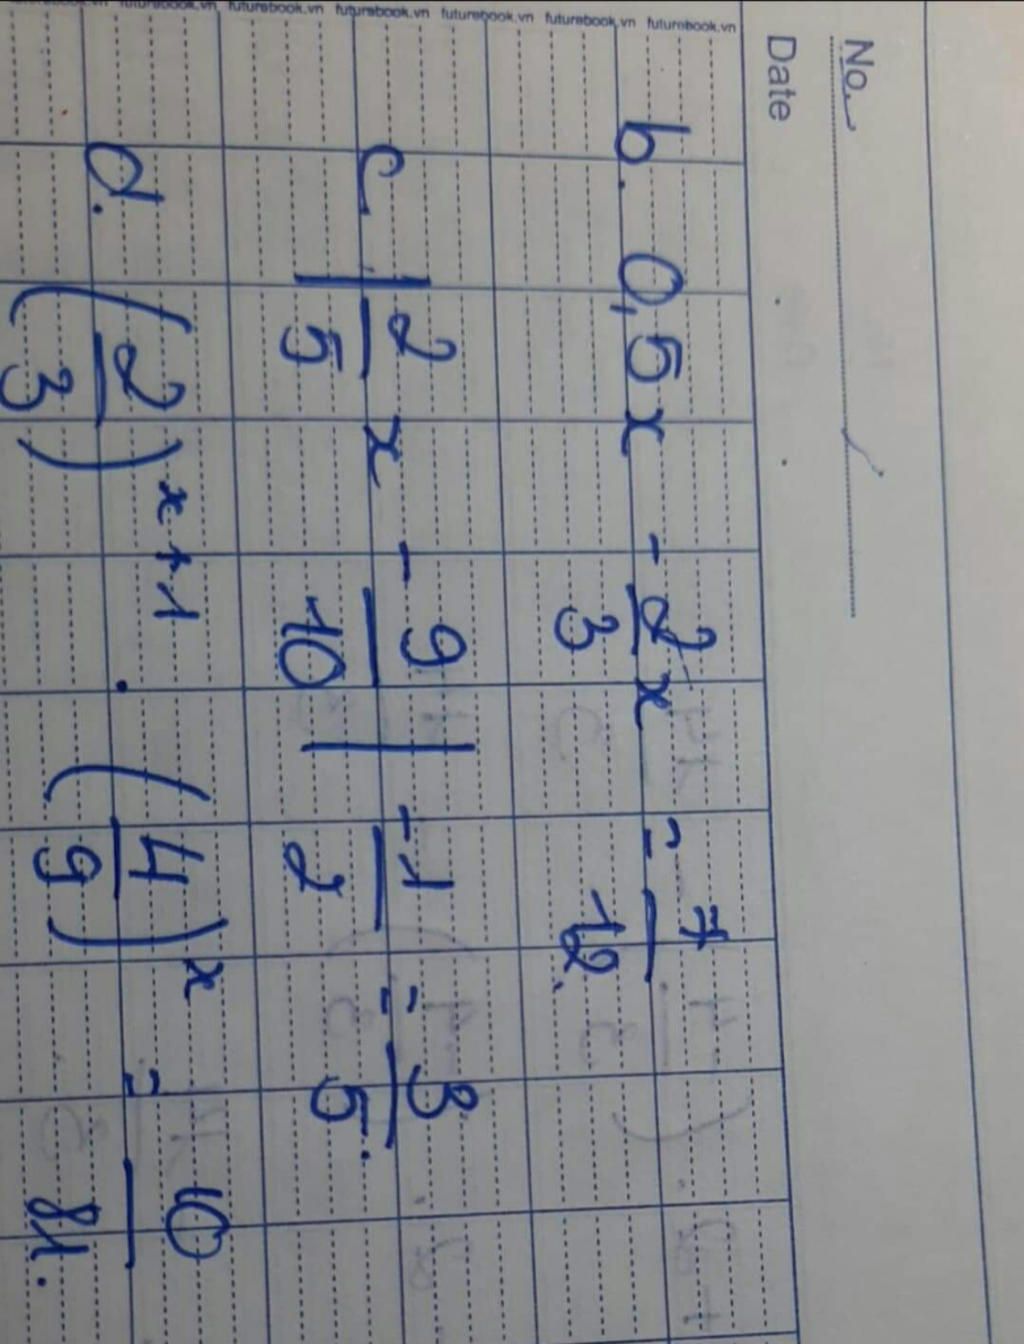 futurebook.vn futurebook.vn futurebook.vn futurebook.vn futurebook.vn futurebook.vn
No.
Date
b. 0,5x - 2/3 x = 7/12.
c. | 2/5 x - 9/10 | - 1/2 = 3/5.
d. (2/3)^{x+1} . (4/9)^x = 10/81.